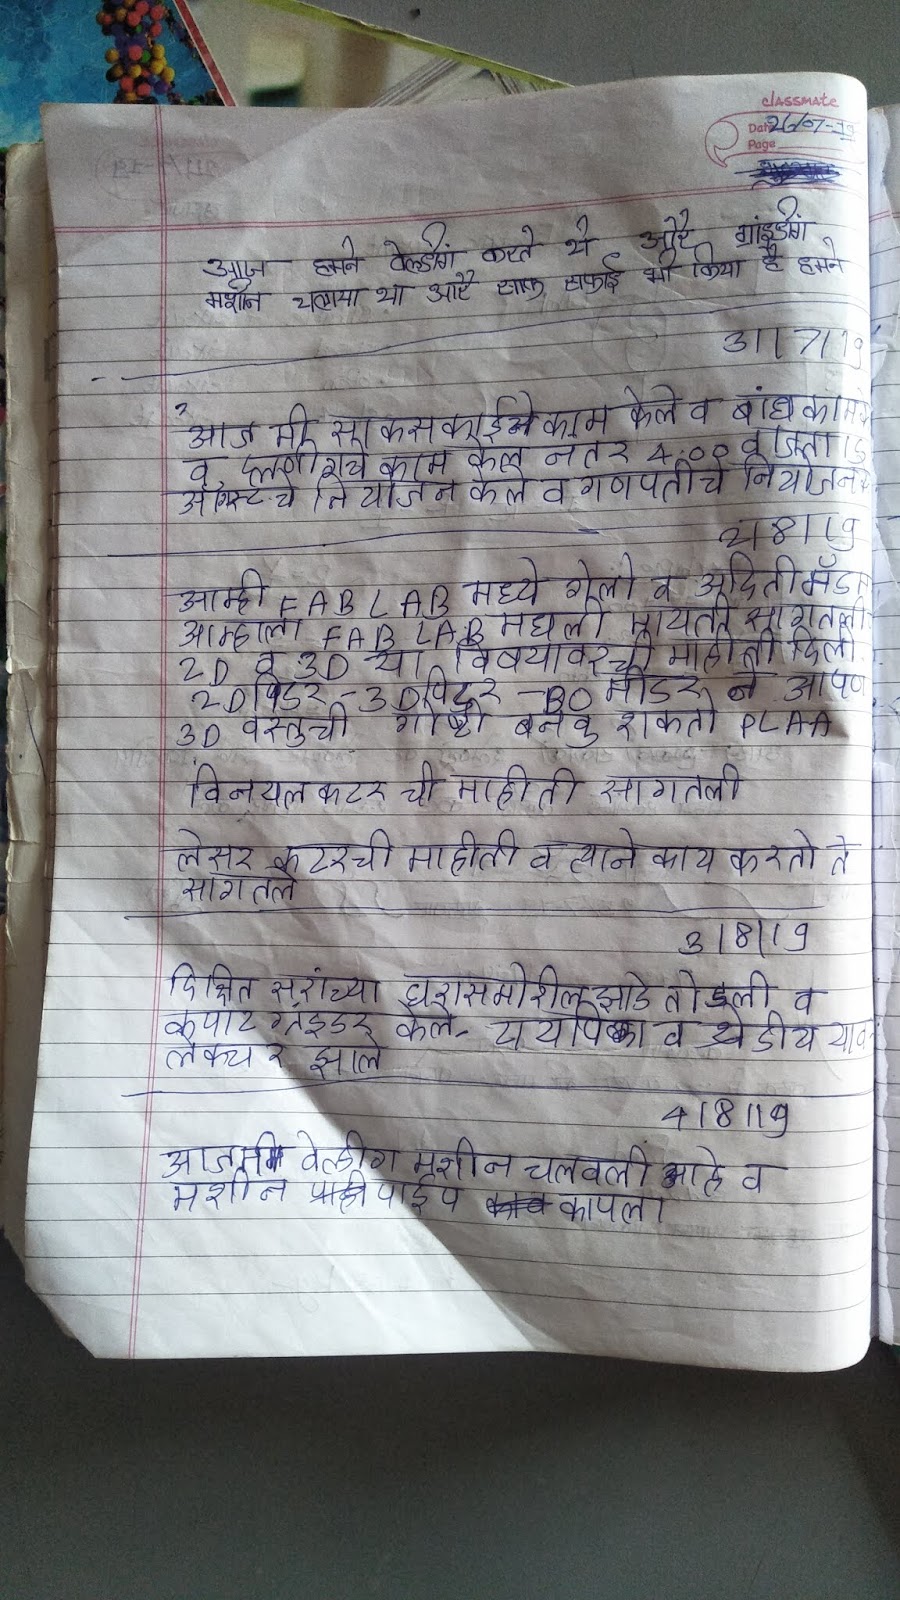 classmate
Date 26/07-19
Page
आज हमने वेल्डींग करते थे और ग्रांइडींग
मशीन चलाया था और साफ सफाई भी किया है हमने
31/7/19
आज मी साफसफाईचे काम केले व बांधकामचे
व काम केल नंतर 4.00 वाजता
ऑगस्टचे नियोजन केले व गणपतीचे नियोजन
2/8/19
आम्ही FAB LAB मध्ये गेलो व अदिती मॅडम
आम्हाला FAB LAB मधली मायती सागतली
2D व 3D या विषयावरची माहीती दिली
2D पिंटर - 3D पिंटर - ने आपण
3D वस्तुची गोष्टी बनवु शकतो PLAA
विनयल कटर ची माहीती सागतली
लेसर कटरची माहीती व त्याने काय करतो ते
सागतले
3/8/19
दिक्षित सरांच्या घरासमोरील झाडे तोडली व
कपाट ग्राइंडर केले -
लेक्चर झाले
4/8/19
आज मी वेल्डींग मशीन चलवली आहे व
मशीन पाईप कापला